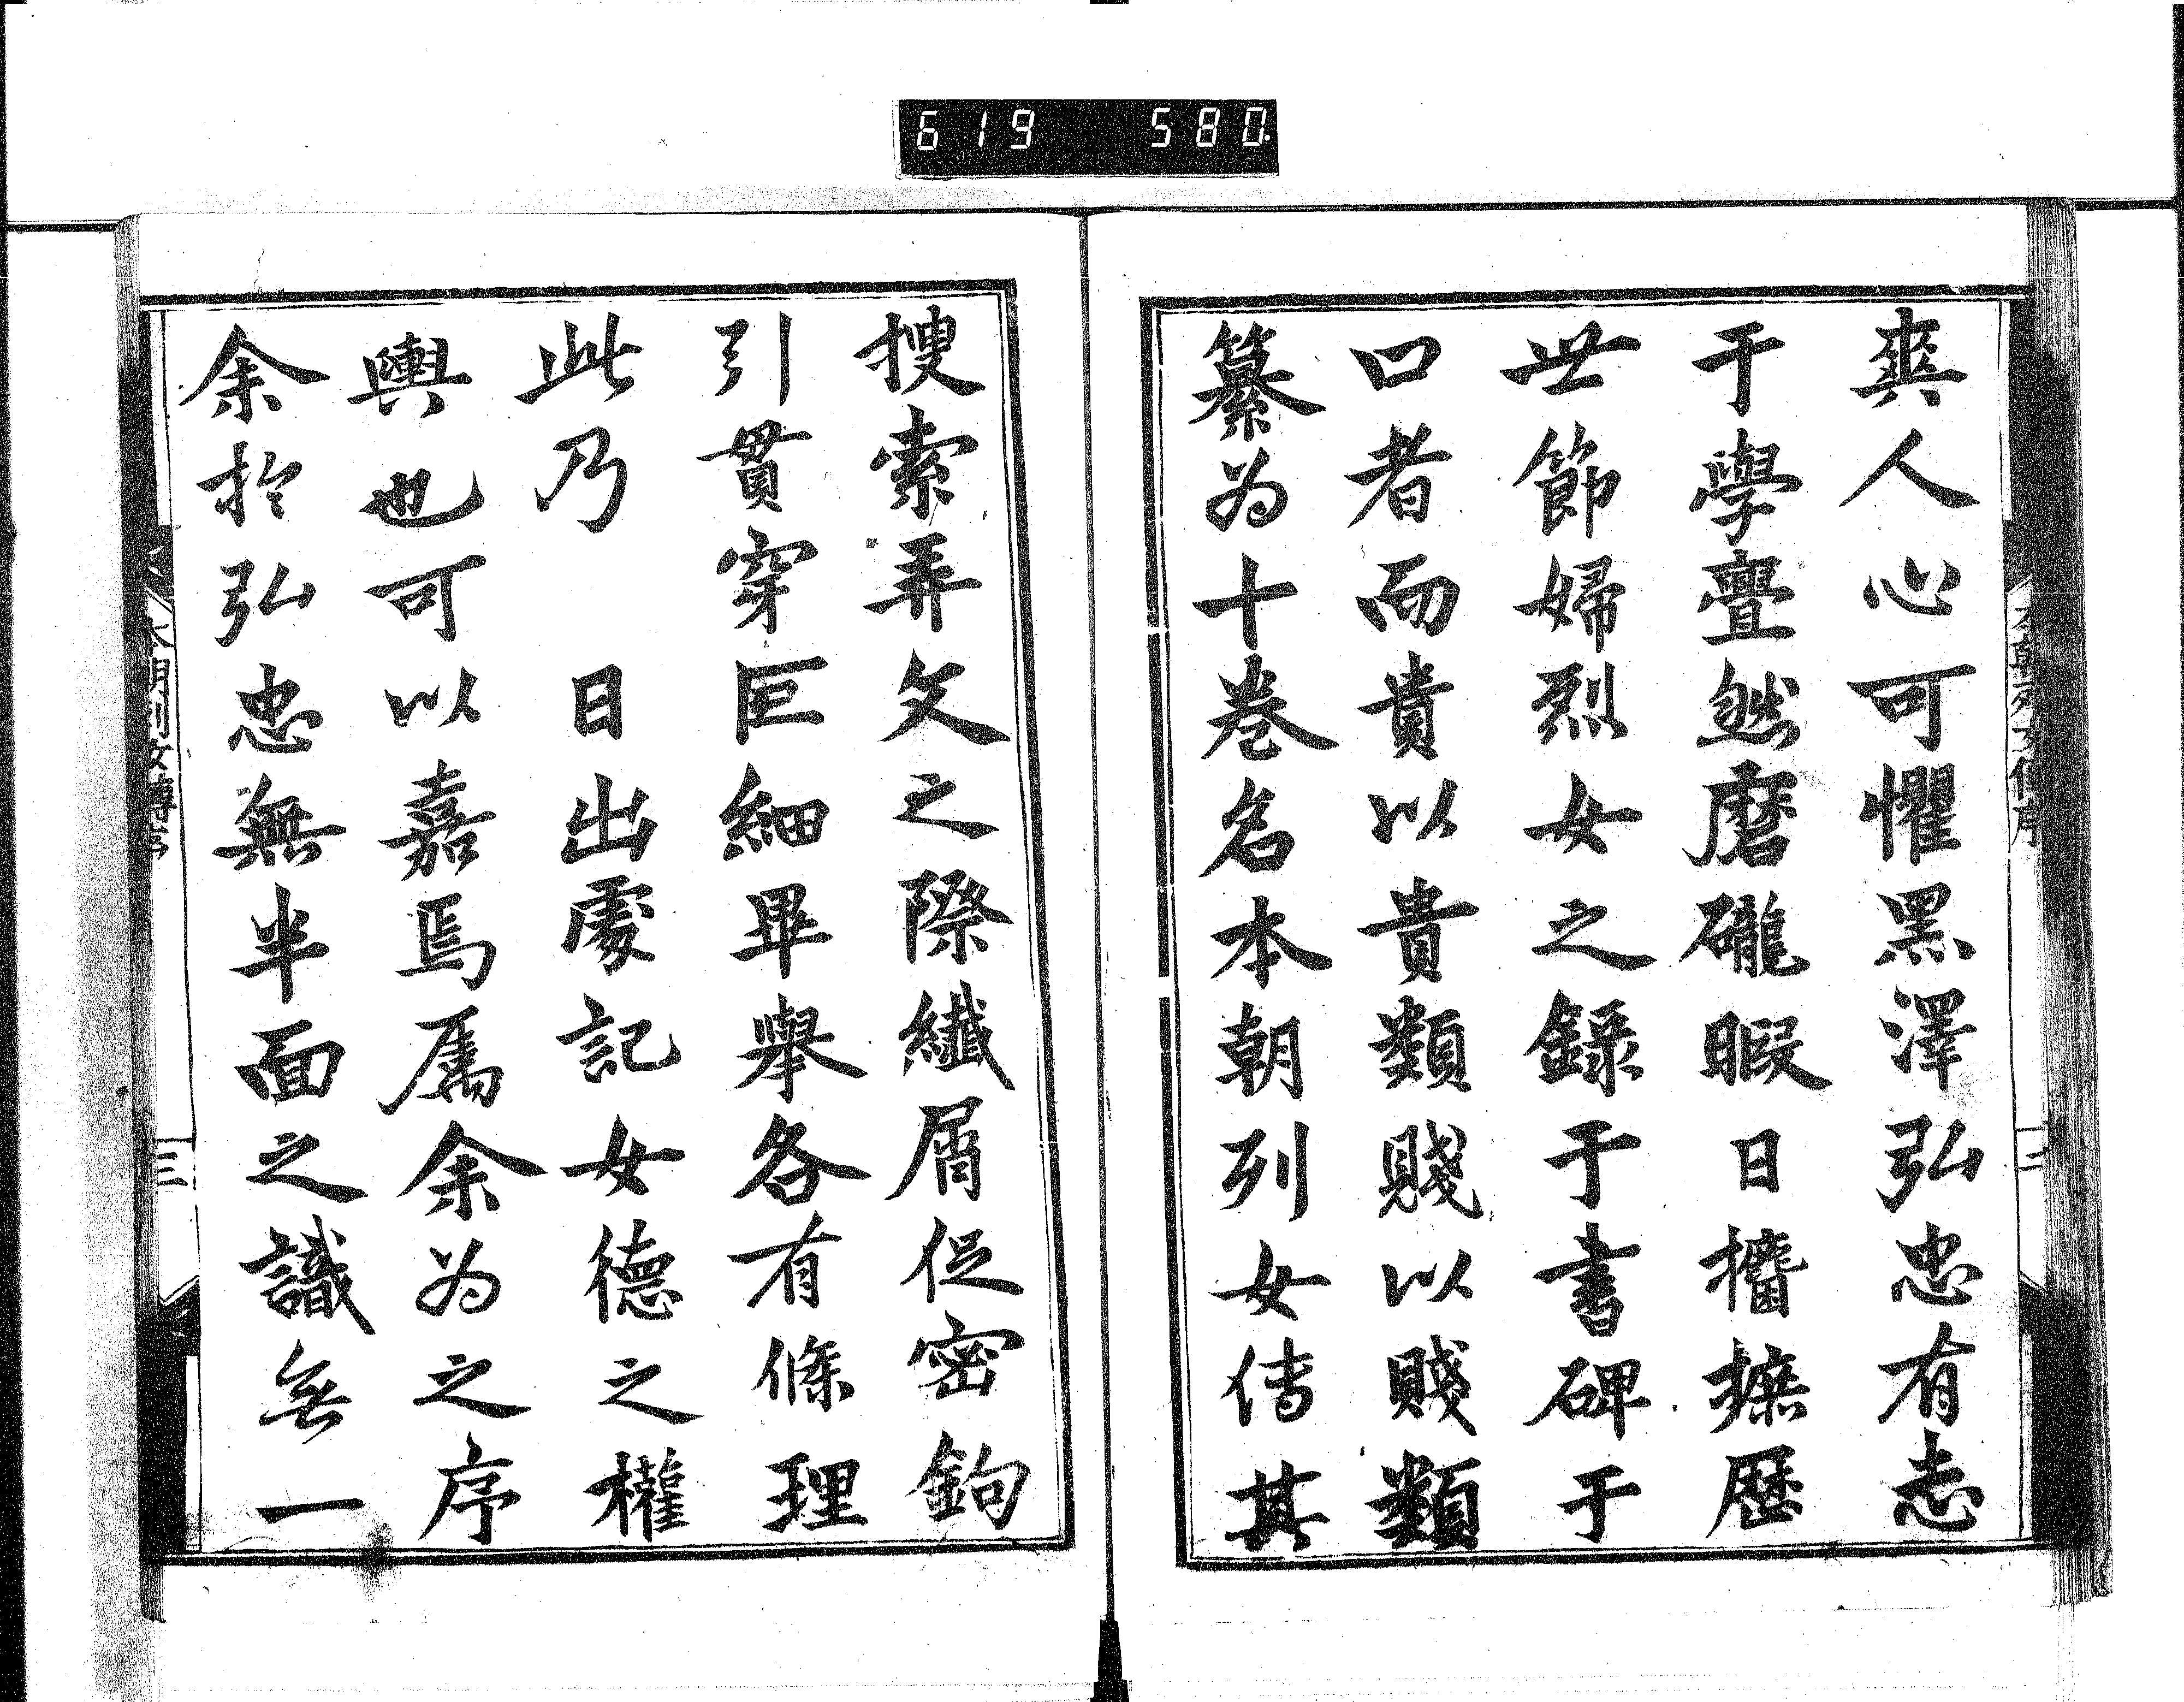 619 580.
爽人心可懼黑澤弘忠有志
于學亹然磨礲暇日攟摭歷
世節婦烈女之錄于書碑于
口者而貴以貴類賤以賤類
纂为十卷名本朝列女传其
搜索弄文之際纖屑促密鉤
引貫穿巨細畢舉各有條理
此乃 日出處記女德之權
輿也可以嘉焉属余为之序
余於弘忠無半面之識無一
本朝列女傳序
二
本朝列女傳序
三